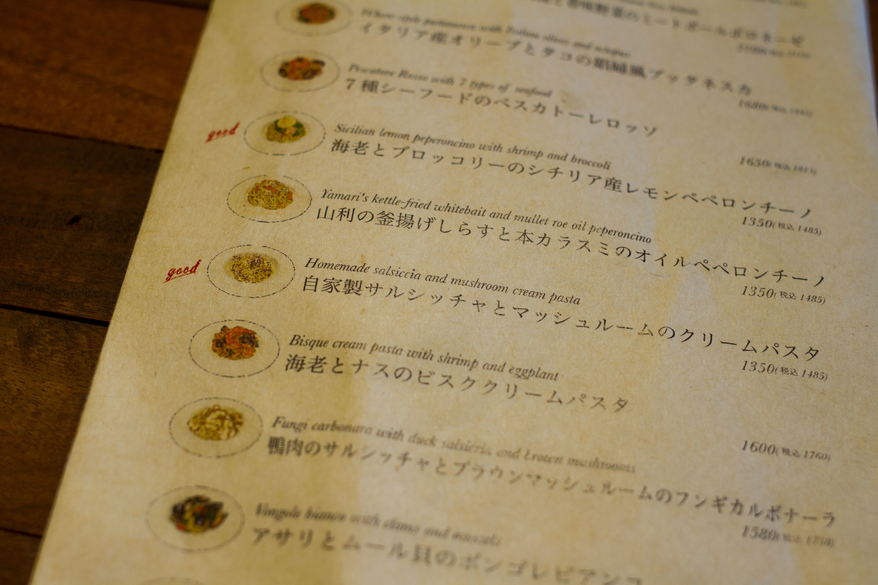 と香味野菜のミートボールボロネーゼ
puttanesca with Italian olives and octopus
イタリア産オリーブとタコの娼婦風プッタネスカ
Pescatore Rosso with 7 types of seafood
7種シーフードのペスカトーレロッソ
1650(税込1815)
good
Sicilian lemon peperoncino with shrimp and broccoli
海老とブロッコリーのシチリア産レモンペペロンチーノ
1350(税込1485)
Yamari's kettle-fried whitebait and mullet roe oil peperoncino
山利の釜揚げしらすと本カラスミのオイルペペロンチーノ
1350(税込1485)
good
Homemade salsiccia and mushroom cream pasta
自家製サルシッチャとマッシュルームのクリームパスタ
1350(税込1485)
Bisque cream pasta with shrimp and eggplant
海老とナスのビスククリームパスタ
1600(税込1760)
Fungi carbonara with duck salsiccia and brown mushrooms
鴨肉のサルシッチャとブラウンマッシュルームのフンギカルボナーラ
1580(税込1738)
Vongole bianco with clams and mussels
アサリとムール貝のボンゴレビアンコ